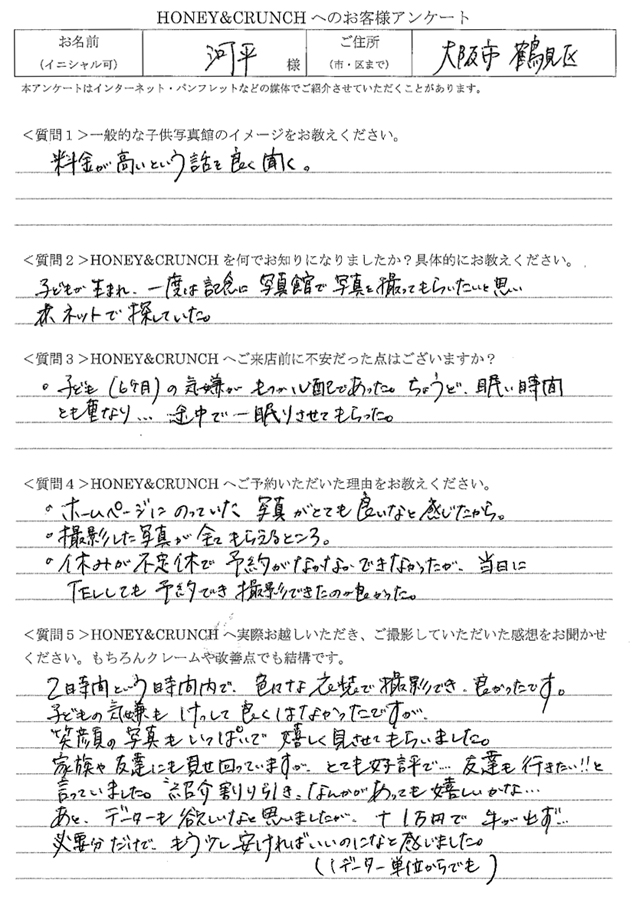 HONEY&CRUNCH へのお客様アンケート
お名前 (イニシャル可) 河平 様 ご住所 (市・区まで) 大阪市 鶴見区
本アンケートはインターネット・パンフレットなどの媒体でご紹介させていただくことがあります。
<質問1>一般的な子供写真館のイメージをお教えください。
料金が高いという話を良く聞く。
<質問2>HONEY&CRUNCH を何でお知りになりましたか？具体的にお教えください。
子どもが生まれ、一度は記念に 写真館で 写真を撮ってもらいたいと思い
ネットで探していた。
<質問3>HONEY&CRUNCH へご来店前に不安だった点はございますか？
・子ども (6ヶ月) の気嫌が もつか心配であった。ちょうど、眠い時間
とも重なり… 途中で一眠りさせてもらった。
<質問4>HONEY&CRUNCH へご予約いただいた理由をお教えください。
・ホームページにのっていた 写真がとても良いなと感じたから。
・撮影した写真が全てもらえるところ。
・休みが不定休で 予約がなかなかできなかったが、当日に
TELしても 予約でき 撮影できたのが良かった。
<質問5>HONEY&CRUNCH へ実際お越しいただき、ご撮影していただいた感想をお聞かせ
ください。もちろんクレームや改善点でも結構です。
2時間という時間内で、色々な衣装で撮影でき、良かったです。
子どもの気嫌も けっして良くはなかったですが、
笑顔の写真もいっぱいで 嬉しく見させてもらいました。
家族や友達にも見せ回っていますが、とても好評で… 友達も行きたい!!と
言っていました。紹介割り引き、なんかがあっても嬉しいかな…
あと、データーも欲しいなと思いましたが、+1万円で 手が出ず…
必要分だけで、もう少し安ければいいのになと感じました。
(1データー単位からでも)